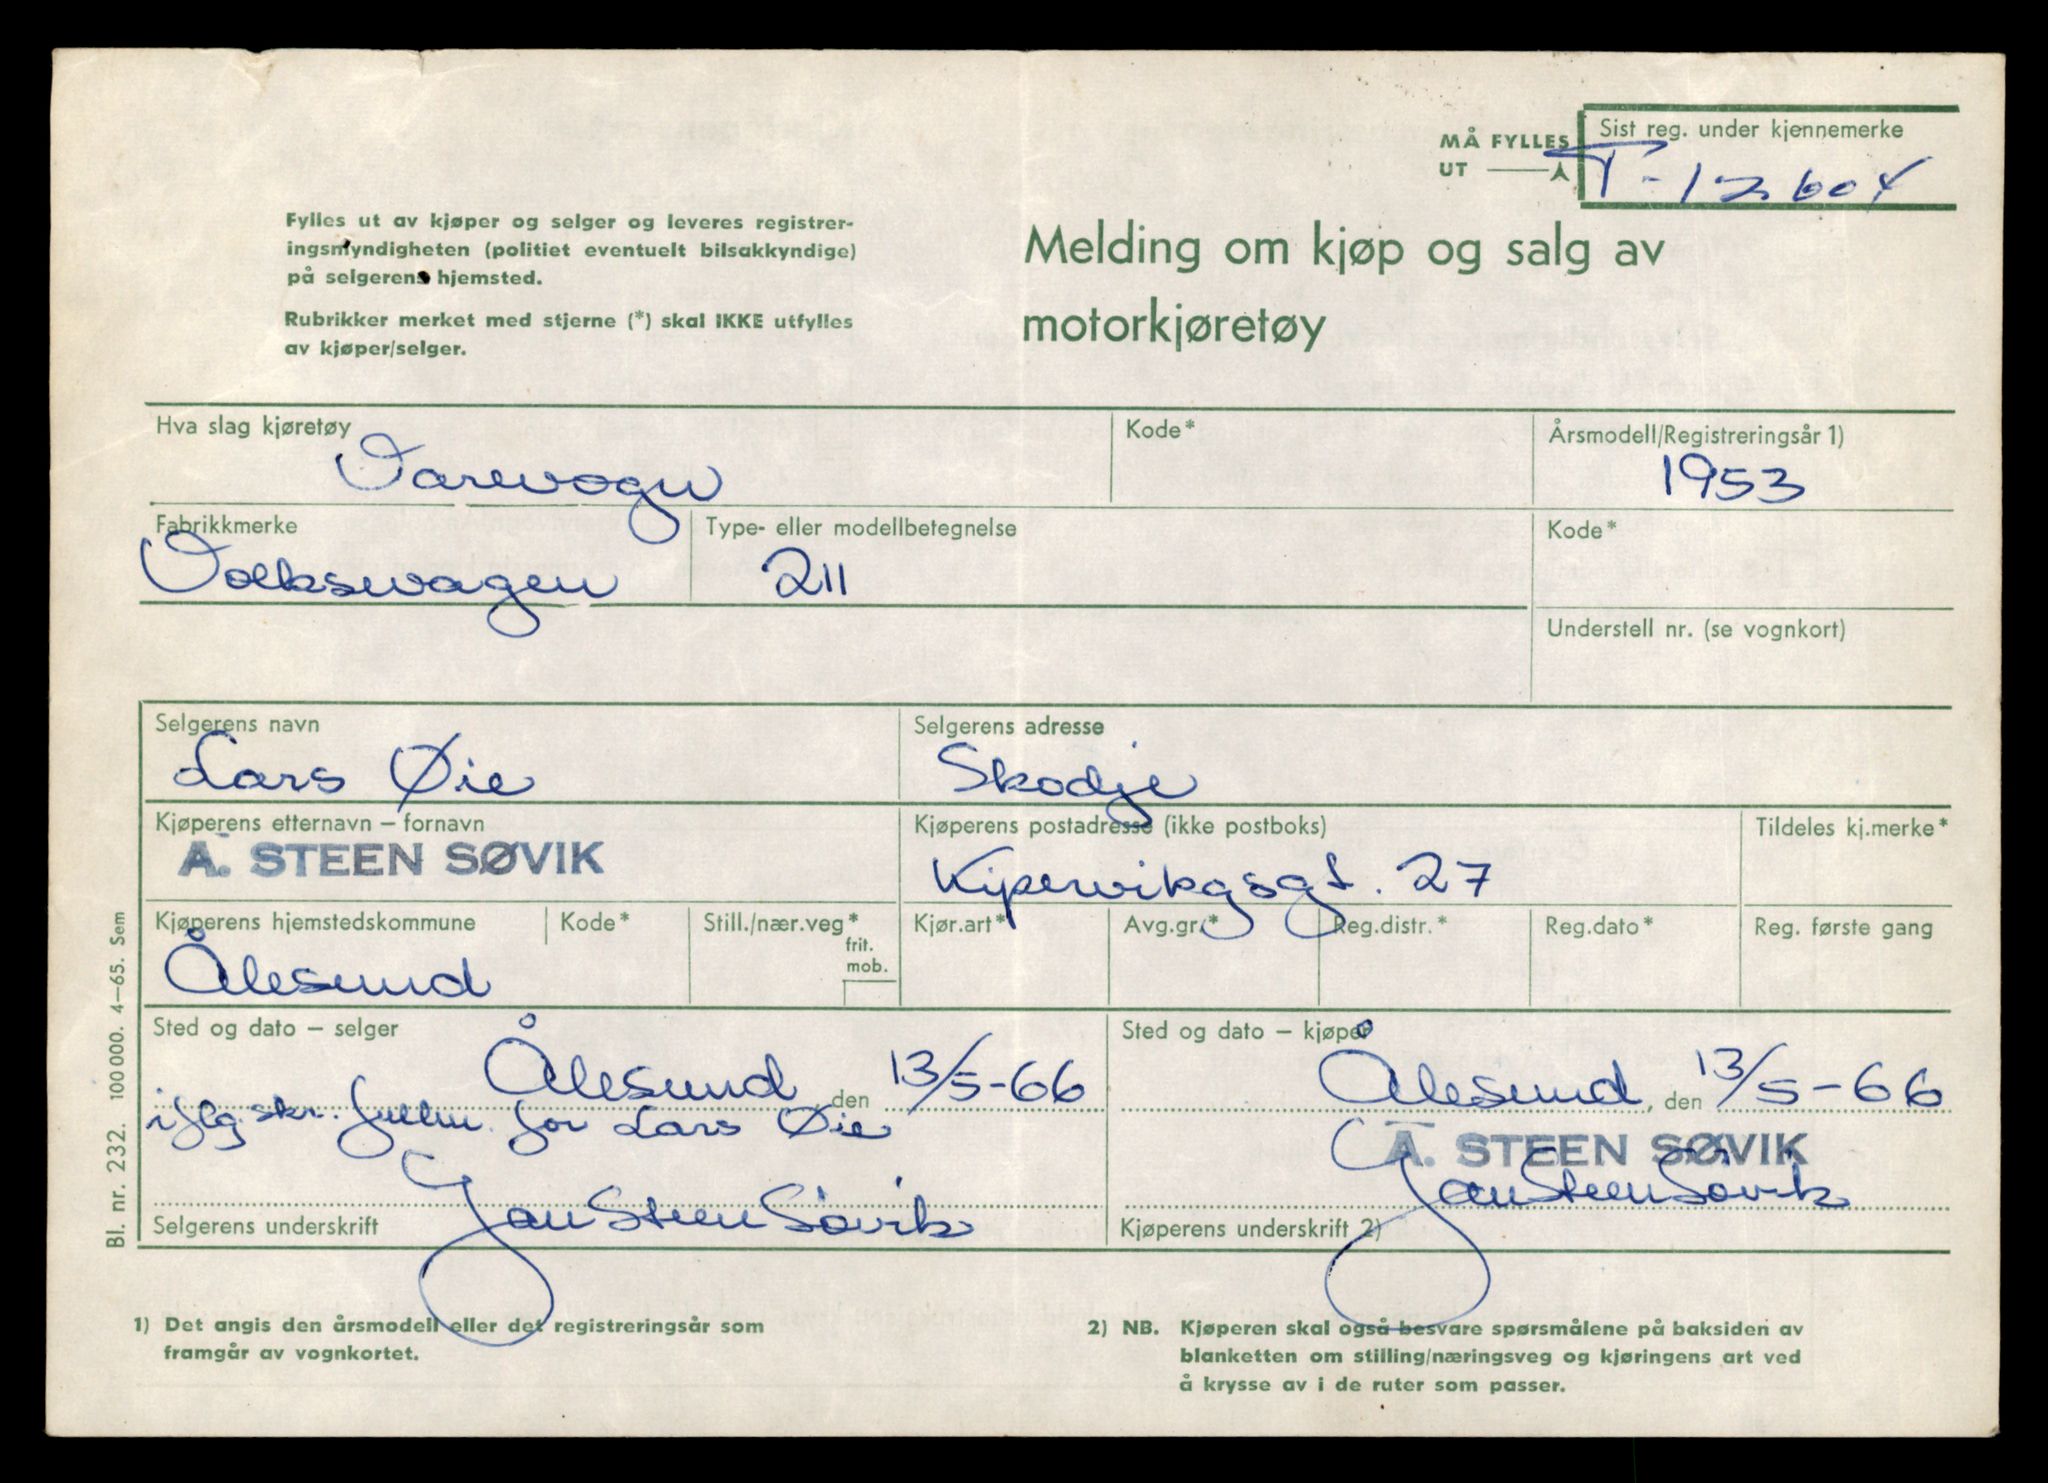 MÅ FYLLES
UT
Sist reg. under kjennemerke
T-12604
Fylles ut av kjøper og selger og leveres registrer-
ingsmyndigheten (politiet eventuelt bilsakkyndige)
på selgerens hjemsted.
Rubrikker merket med stjerne (*) skal IKKE utfylles
av kjøper/selger.
Melding om kjøp og salg av
motorkjøretøy
Hva slag kjøretøy
Varevogn
Kode*
Årsmodell/Registreringsår 1)
1953
Fabrikkmerke
Volkswagen
Type- eller modellbetegnelse
211
Kode*
Understell nr. (se vognkort)
Selgerens navn
Lars Øie
Selgerens adresse
Skodje
Kjøperens etternavn – fornavn
A. STEEN SØVIK
Kjøperens postadresse (ikke postboks)
Kipervikgsgt. 27
Tildeles kj.merke*
Kjøperens hjemstedskommune
Ålesund
Kode*
Still./nær.veg*
frit.
mob.
Kjør.art*
Avg.gr.*
Reg.distr.*
Reg.dato*
Reg. første gang
Sted og dato – selger
Ålesund, den 13/5-66
iflg. skr. fullm. for Lars Øie
Jan Steen Søvik
Selgerens underskrift
Sted og dato – kjøper
Ålesund, den 13/5-66
A. STEEN SØVIK
Jan Steen Søvik
Kjøperens underskrift 2)
Bl. nr. 232. 100000. 4–65. Sem
1) Det angis den årsmodell eller det registreringsår som
framgår av vognkortet.
2) NB. Kjøperen skal også besvare spørsmålene på baksiden av
blanketten om stilling/næringsveg og kjøringens art ved
å krysse av i de ruter som passer.